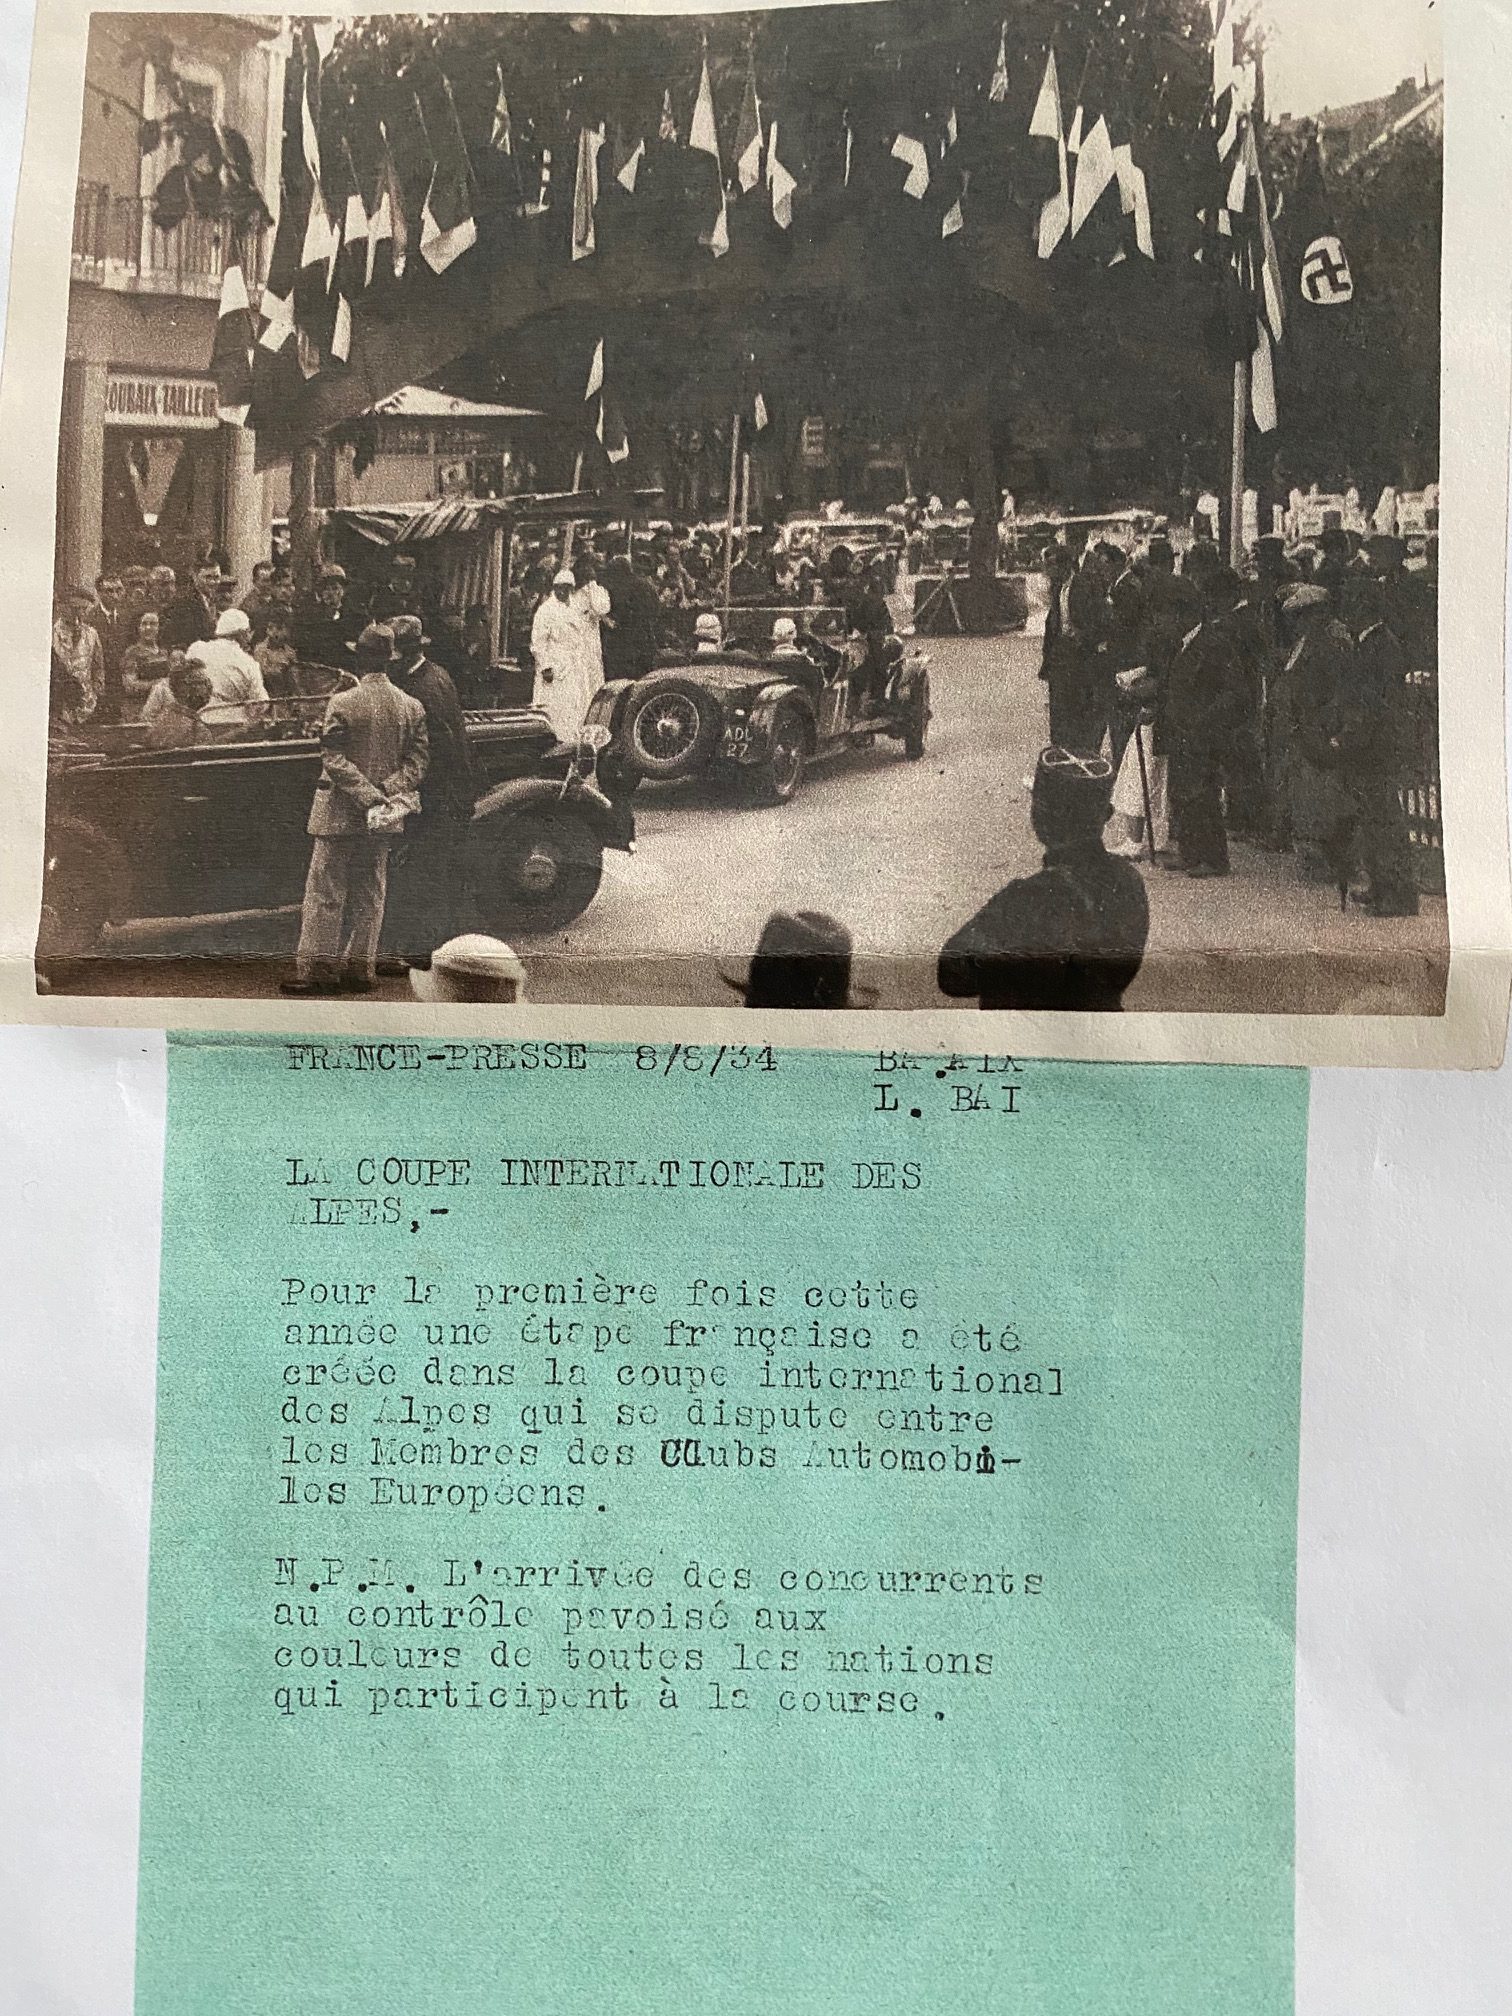 ROUBAIX-TAILLEUR
ADU
27
FRANCE-PRESSE 8/8/34
L. BAI
LA COUPE INTERNATIONALE DES
ALPES,-
Pour la première fois cette
année une étape française a été
créée dans la coupe international
des Alpes qui se dispute entre
les Membres des Clubs Automobi-
les Européens.
N.P.M. L'arrivée des concurrents
au contrôle pavoisé aux
couleurs de toutes les nations
qui participent à la course.